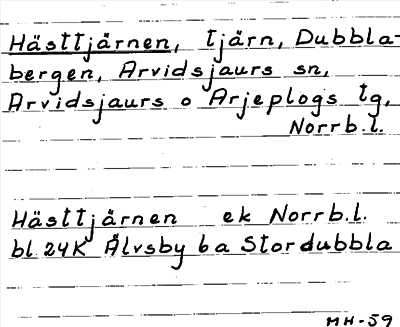 Hästtjärnen, tjärn, Dubbla-
bergen, Arvidsjaurs sn,
Arvidsjaurs o Arjeplogs tg,
Norrb.l.
Hästtjärnen ek Norrb.l.
bl 24K Älvsby 6a Stordubbla
MH-59